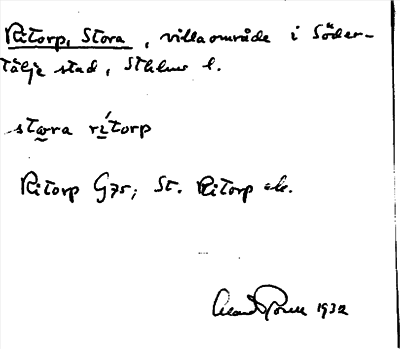 Ritorp, Stora, villaområde i Söder-
tälje stad, Sthlms l.
stora rítorp
Ritorp G75; St. Ritorp ek.
1932